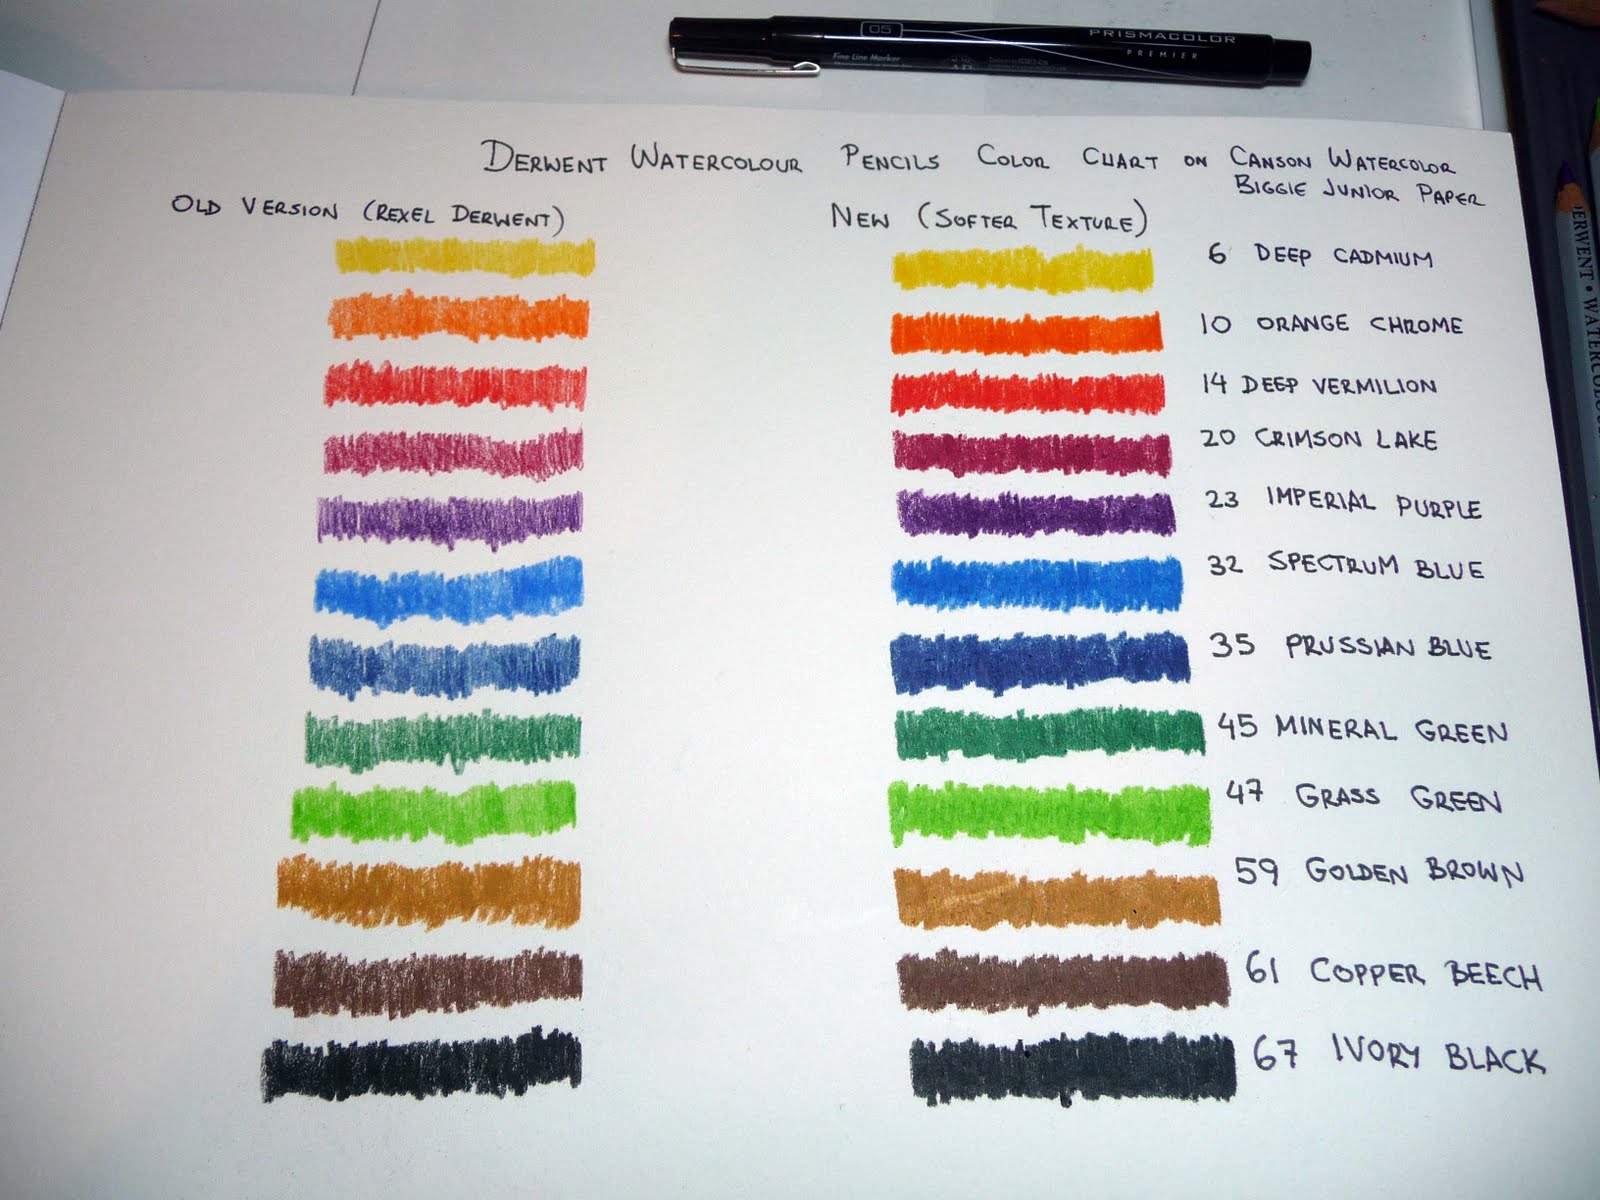 05
PRISMACOLOR
PREMIER
Fine Line Marker
DERWENT WATERCOLOUR PENCILS COLOR CHART ON CANSON WATERCOLOR
BIGGIE JUNIOR PAPER
OLD VERSION (REXEL DERWENT)
NEW (SOFTER TEXTURE)
6 DEEP CADMIUM
10 ORANGE CHROME
14 DEEP VERMILION
20 CRIMSON LAKE
23 IMPERIAL PURPLE
32 SPECTRUM BLUE
35 PRUSSIAN BLUE
45 MINERAL GREEN
47 GRASS GREEN
59 GOLDEN BROWN
61 COPPER BEECH
67 IVORY BLACK